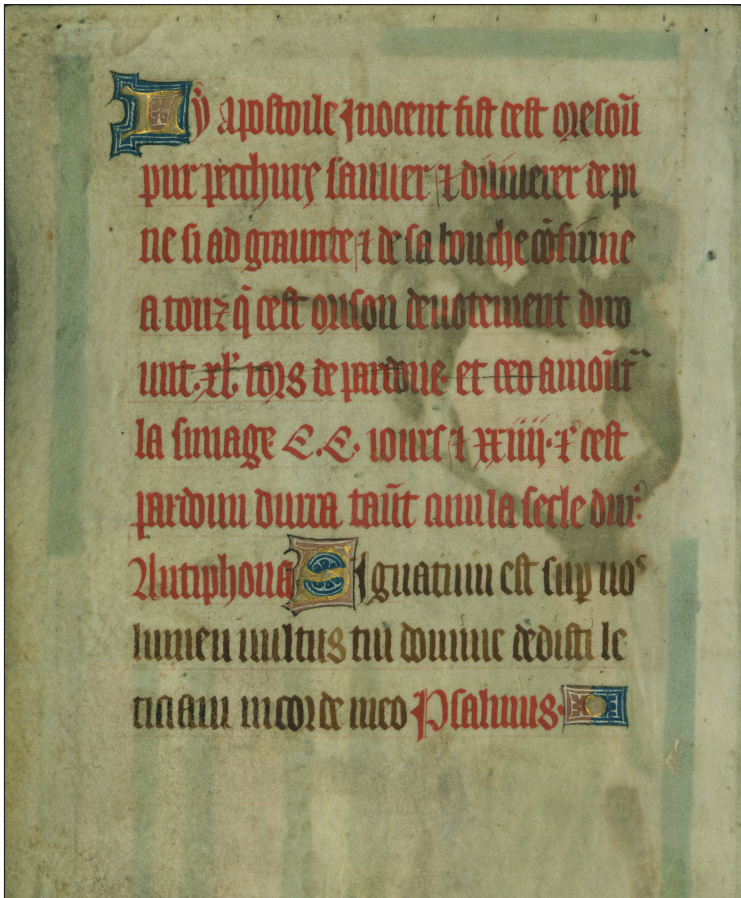 Ly apostoile Inocent fist cest oresoū
pur pecchurs sauuer ⁊ diliuerer de pi
ne si ad graunte ⁊ de sa bouche cōfirme
a touz q̄ cest orison deuotement diro
unt .xl. iors de pardone et ceo amoūt
la summage C.C. iours ⁊ xxiiii.
pardoun durra taūt cum la secle dur
Antiphona Signatum est sup nos
lumen uultus tui domine dedisti le
ticiam in corde meo Psalmus.